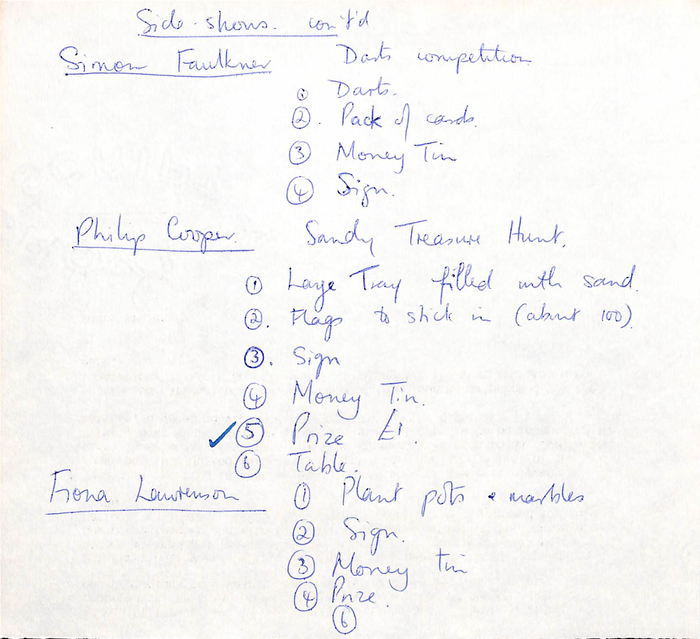 Side-shows. con'td
Simon Faulkner Darts competition
① Darts.
②. Pack of cards.
③ Money Tin
④ Sign.
Philip Cooper. Sandy Treasure Hunt.
① Large Tray filled with sand.
②. Flags to stick in (about 100).
③. Sign
④ Money Tin.
✓ ⑤ Prize £1.
⑥ Table.
Fiona Lawrenson ① Plant pots + marbles
② Sign.
③ Money tin
④ Prize.
⑥